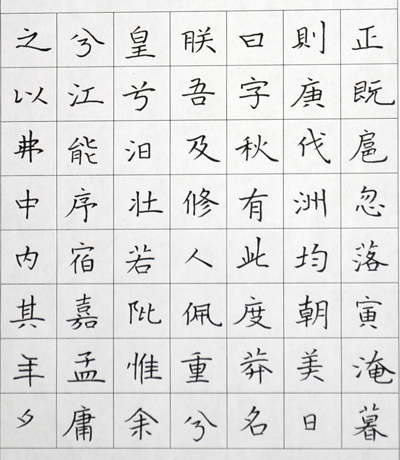 正既扈忽落寅淹暮
則庚代洲均朝美日
曰字秋有此度莽名
朕吾及修人佩重兮
皇兮汩壯若阰惟余
兮江能序宿嘉孟庸
之以弗中内其年夕